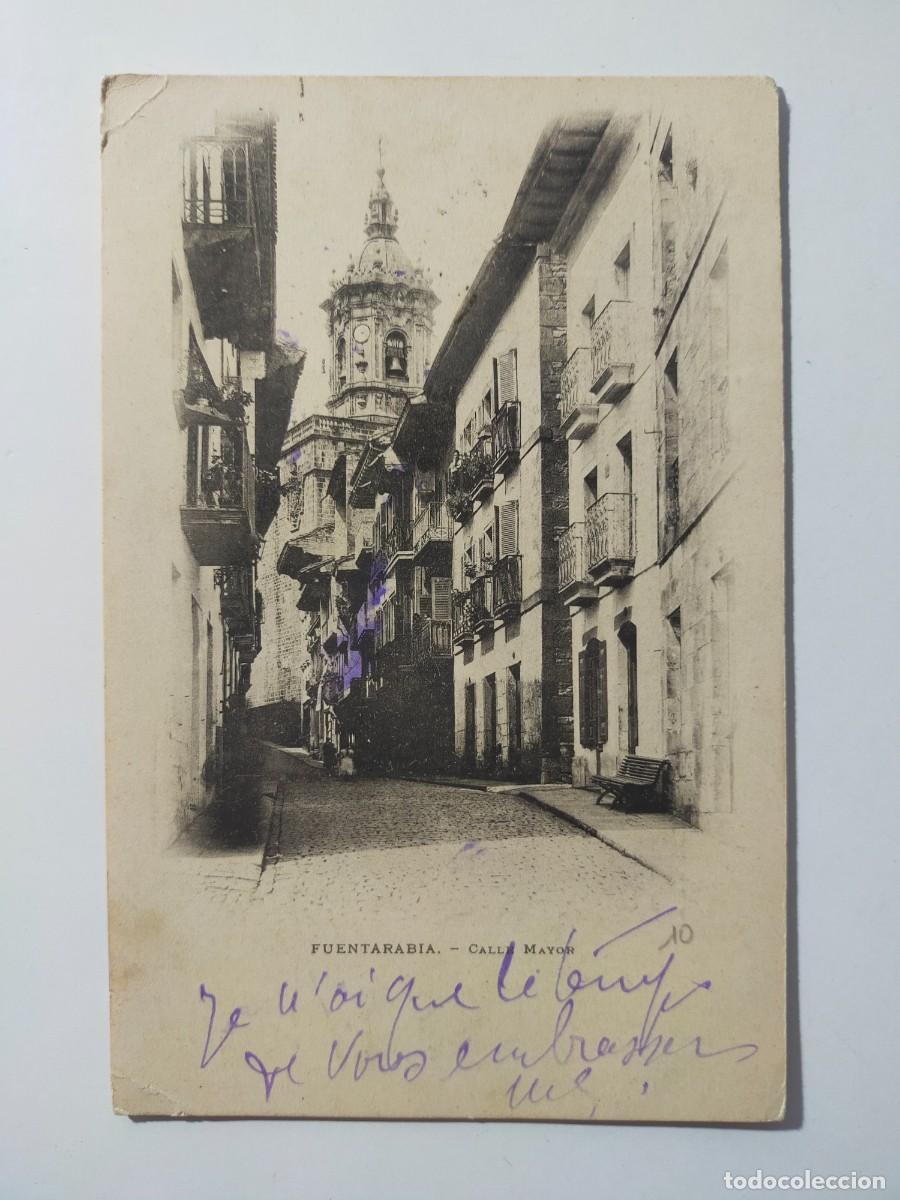 10
FUENTARABIA. – CALLE MAYOR
Je n'ai que le temps
de vous embrasser
todocoleccion